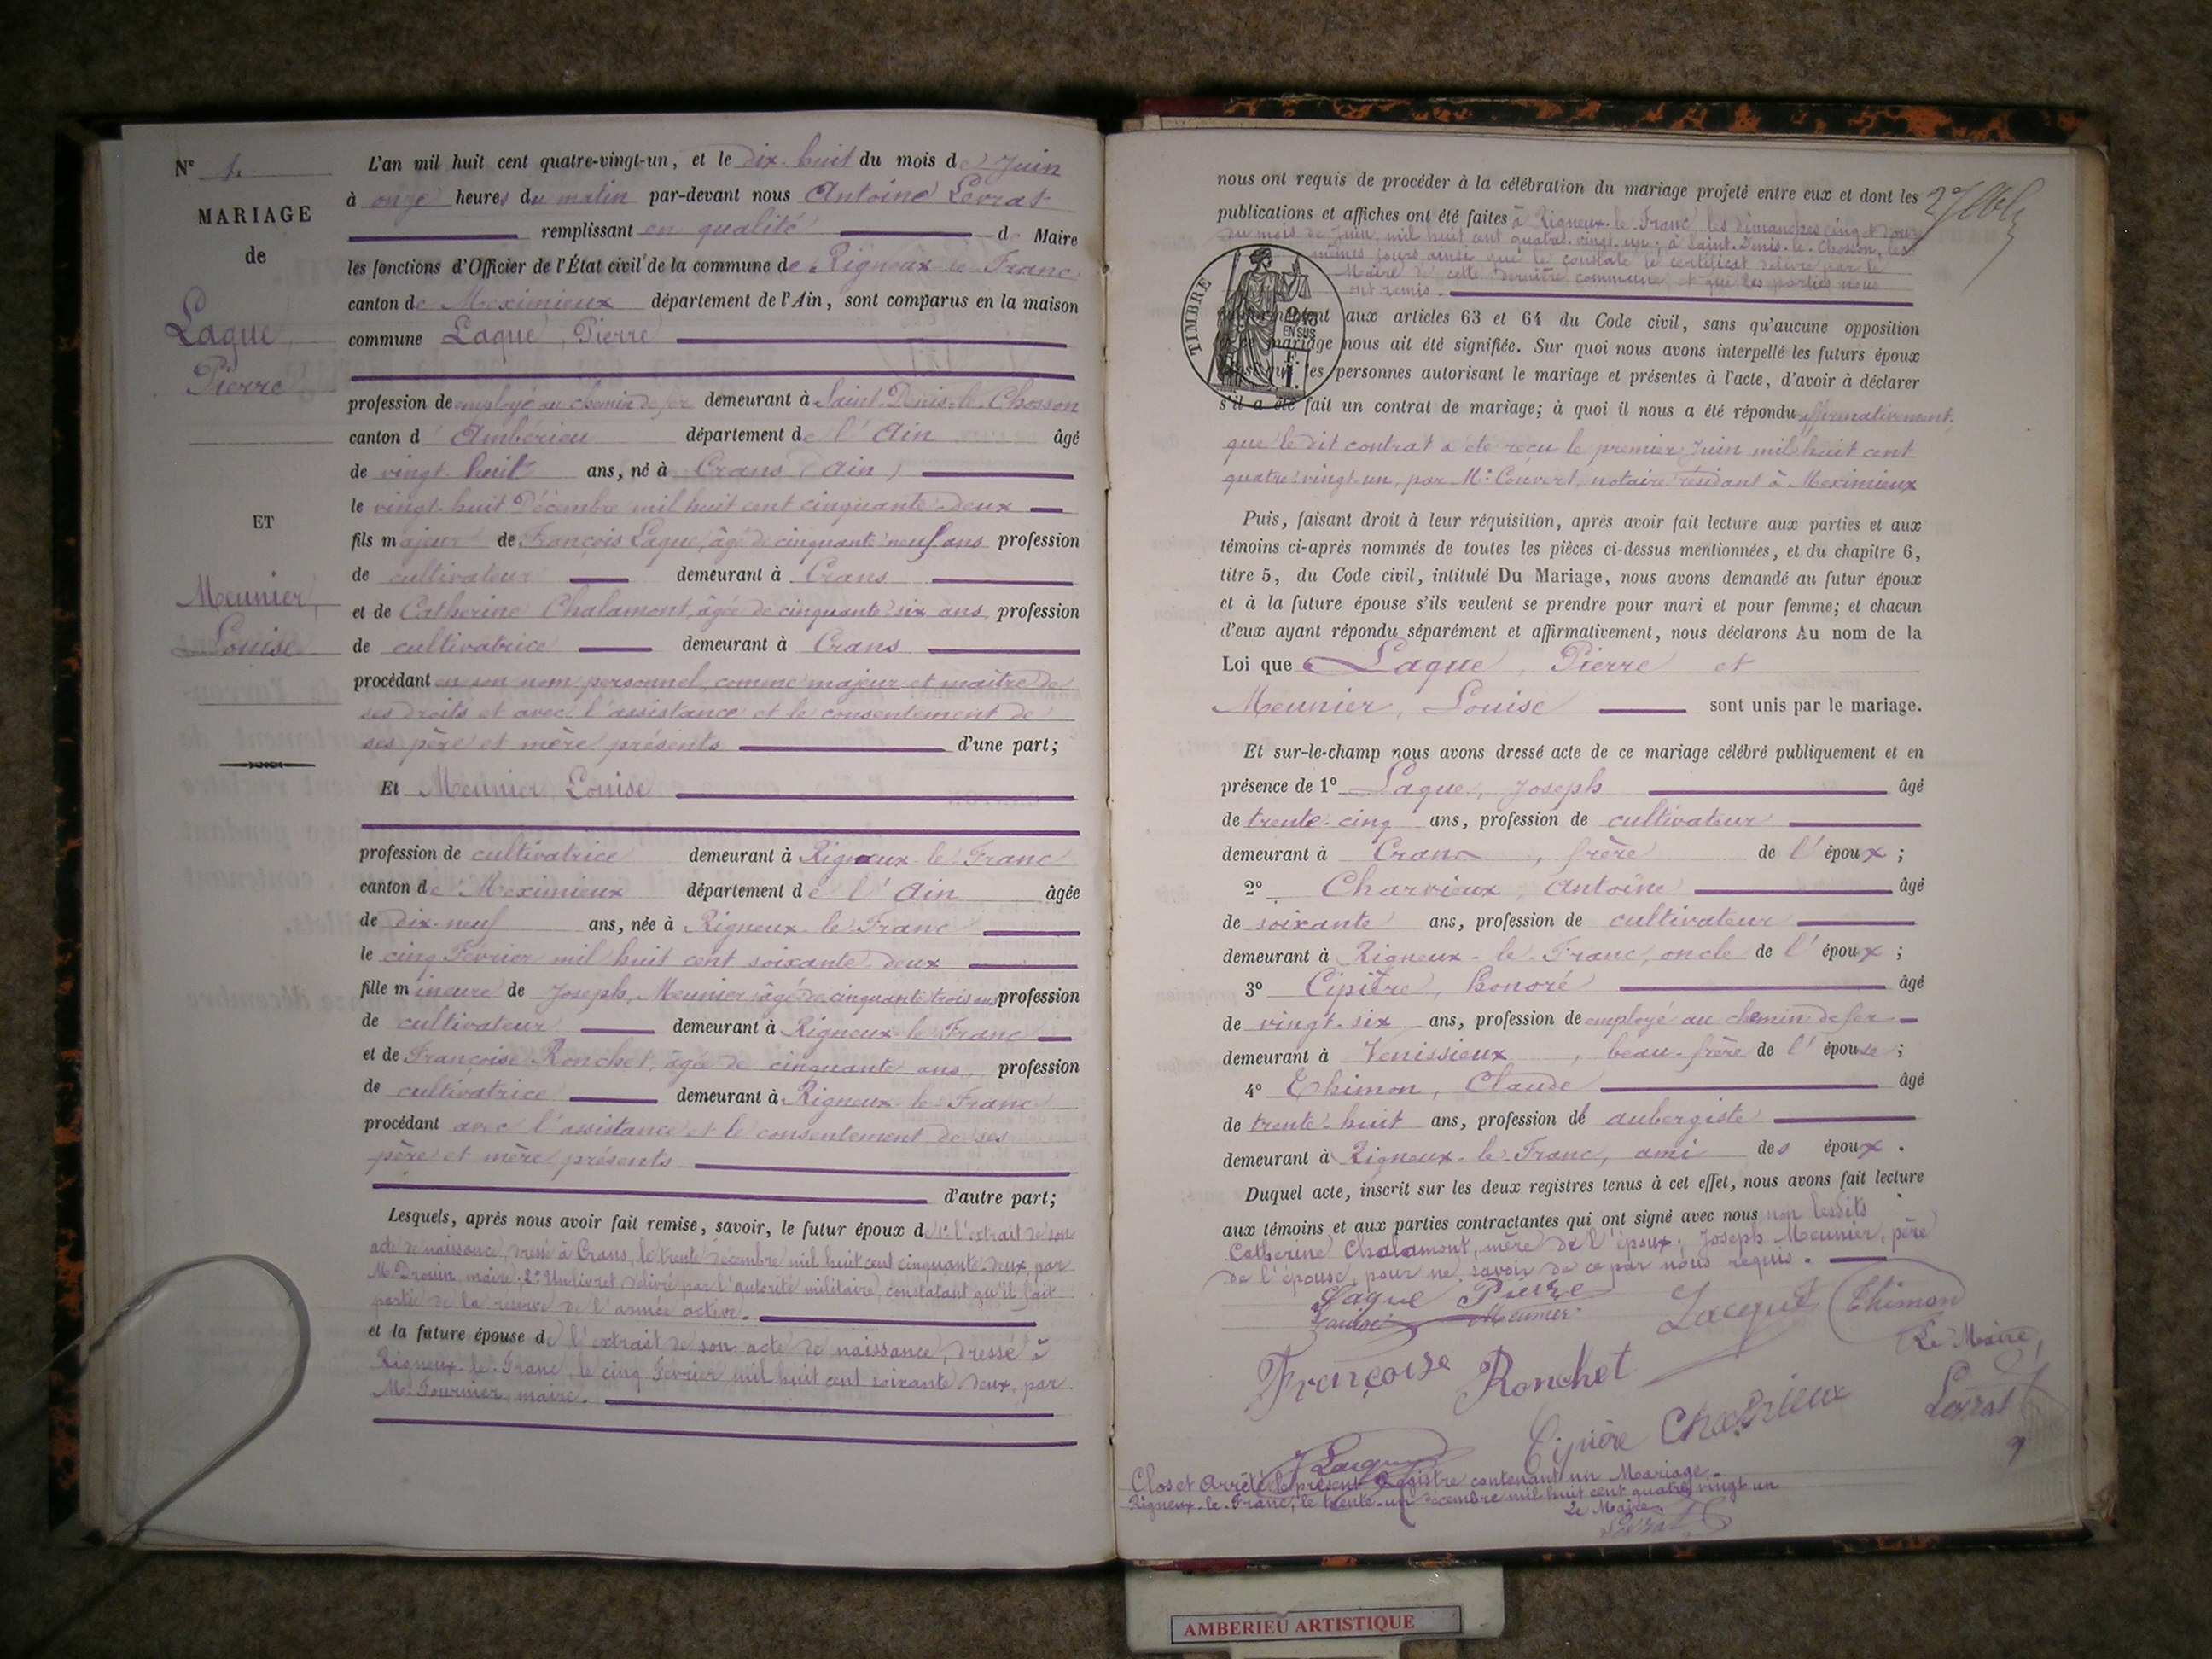 N° 1.
MARIAGE
de
Laque
Pierre
ET
Meunier,
Louise
L'an mil huit cent quatre-vingt-un, et le dix-huit du mois de Juin
à onze heures du matin par-devant nous Antoine Levrat
remplissant en qualité de Maire
les fonctions d'Officier de l'État civil de la commune de Rigneux le Franc
canton de Meximieux département de l'Ain, sont comparus en la maison
commune Laque, Pierre
profession de employé au chemin de fer demeurant à Saint-Denis-le-Chosson
canton d'Ambérieu département de l'Ain âgé
de vingt huit ans, né à Crans (Ain)
le vingt-huit Décembre mil huit cent cinquante-deux
fils majeur de François Laque, âgé de cinquante neuf ans profession
de cultivateur demeurant à Crans
et de Catherine Chalamont, âgée de cinquante six ans, profession
de cultivatrice demeurant à Crans
procédant en son nom personnel, comme majeur et maître de
ses droits et avec l'assistance et le consentement de
ses père et mère présents d'une part;
Et Meunier Louise
profession de cultivatrice demeurant à Rigneux-le-Franc
canton de Meximieux département de l'Ain âgée
de dix-neuf ans, née à Rigneux-le-Franc
le cinq Février mil huit cent soixante-deux
fille mineure de Joseph Meunier âgé de cinquante trois ans profession
de cultivateur demeurant à Rigneux-le-Franc
et de Françoise Ronchet, âgée de cinquante ans, profession
de cultivatrice demeurant à Rigneux-le-Franc
procédant avec l'assistance et le consentement de ses
père et mère présents
d'autre part;
Lesquels, après nous avoir fait remise, savoir, le futur époux de 1° l'extrait de son
acte de naissance, dressé à Crans, le trente décembre mil huit cent cinquante-deux, par
Mr Drouin maire; 2° Un livret délivré par l'autorité militaire, constatant qu'il fait
partie de la réserve de l'armée active.
et la future épouse de l'extrait de son acte de naissance, dressé à
Rigneux-le-Franc, le cinq Février mil huit cent soixante-deux, par
Mr Fournier, maire.
nous ont requis de procéder à la célébration du mariage projeté entre eux et dont les
publications et affiches ont été faites à Rigneux-le-Franc, les dimanches cinq et douze
du mois de Juin, mil huit cent quatre-vingt-un; à Saint-Denis-le-Chosson, les
mêmes jours ainsi que le constate le certificat délivré par le
Maire de cette dernière commune et que les parties nous
ont remis.
TIMBRE
EN SUS
aux articles 63 et 64 du Code civil, sans qu'aucune opposition
mariage nous ait été signifiée. Sur quoi nous avons interpellé les futurs époux
les personnes autorisant le mariage et présentes à l'acte, d'avoir à déclarer
s'il a été fait un contrat de mariage; à quoi il nous a été répondu affirmativement.
que le dit contrat a été reçu le premier Juin mil huit cent
quatre-vingt-un, par Me Convert, notaire résidant à Meximieux
Puis, faisant droit à leur réquisition, après avoir fait lecture aux parties et aux
témoins ci-après nommés de toutes les pièces ci-dessus mentionnées, et du chapitre 6,
titre 5, du Code civil, intitulé Du Mariage, nous avons demandé au futur époux
et à la future épouse s'ils veulent se prendre pour mari et pour femme; et chacun
d'eux ayant répondu séparément et affirmativement, nous déclarons Au nom de la
Loi que Laque, Pierre et
Meunier, Louise sont unis par le mariage.
Et sur-le-champ nous avons dressé acte de ce mariage célébré publiquement et en
présence de 1° Laque, Joseph âgé
de trente-cinq ans, profession de cultivateur
demeurant à Crans, frère de l'époux;
2° Charvieux, Antoine âgé
de soixante ans, profession de cultivateur
demeurant à Rigneux-le-Franc, oncle de l'époux;
3° Cipière, honoré âgé
de vingt-six ans, profession de employé au chemin de fer
demeurant à Venissieux, beau-frère de l'épouse;
4° Thimon, Claude âgé
de trente-huit ans, profession de aubergiste
demeurant à Rigneux-le-Franc, ami des époux.
Duquel acte, inscrit sur les deux registres tenus à cet effet, nous avons fait lecture
aux témoins et aux parties contractantes qui ont signé avec nous non lesdits
Catherine Chalamont, mère de l'époux; Joseph Meunier, père
de l'épouse, pour ne savoir de ce par nous requis.
Laque Pierre
Louise Meunier
Laque Thimon
Françoise Ronchet
Le Maire,
Levrat
Cipière Charvieux
Clos et Arrêté le présent Registre contenant un Mariage.
Rigneux-le-Franc, le trente-un décembre mil huit cent quatre vingt un
Le Maire,
Levrat
AMBERIEU ARTISTIQUE